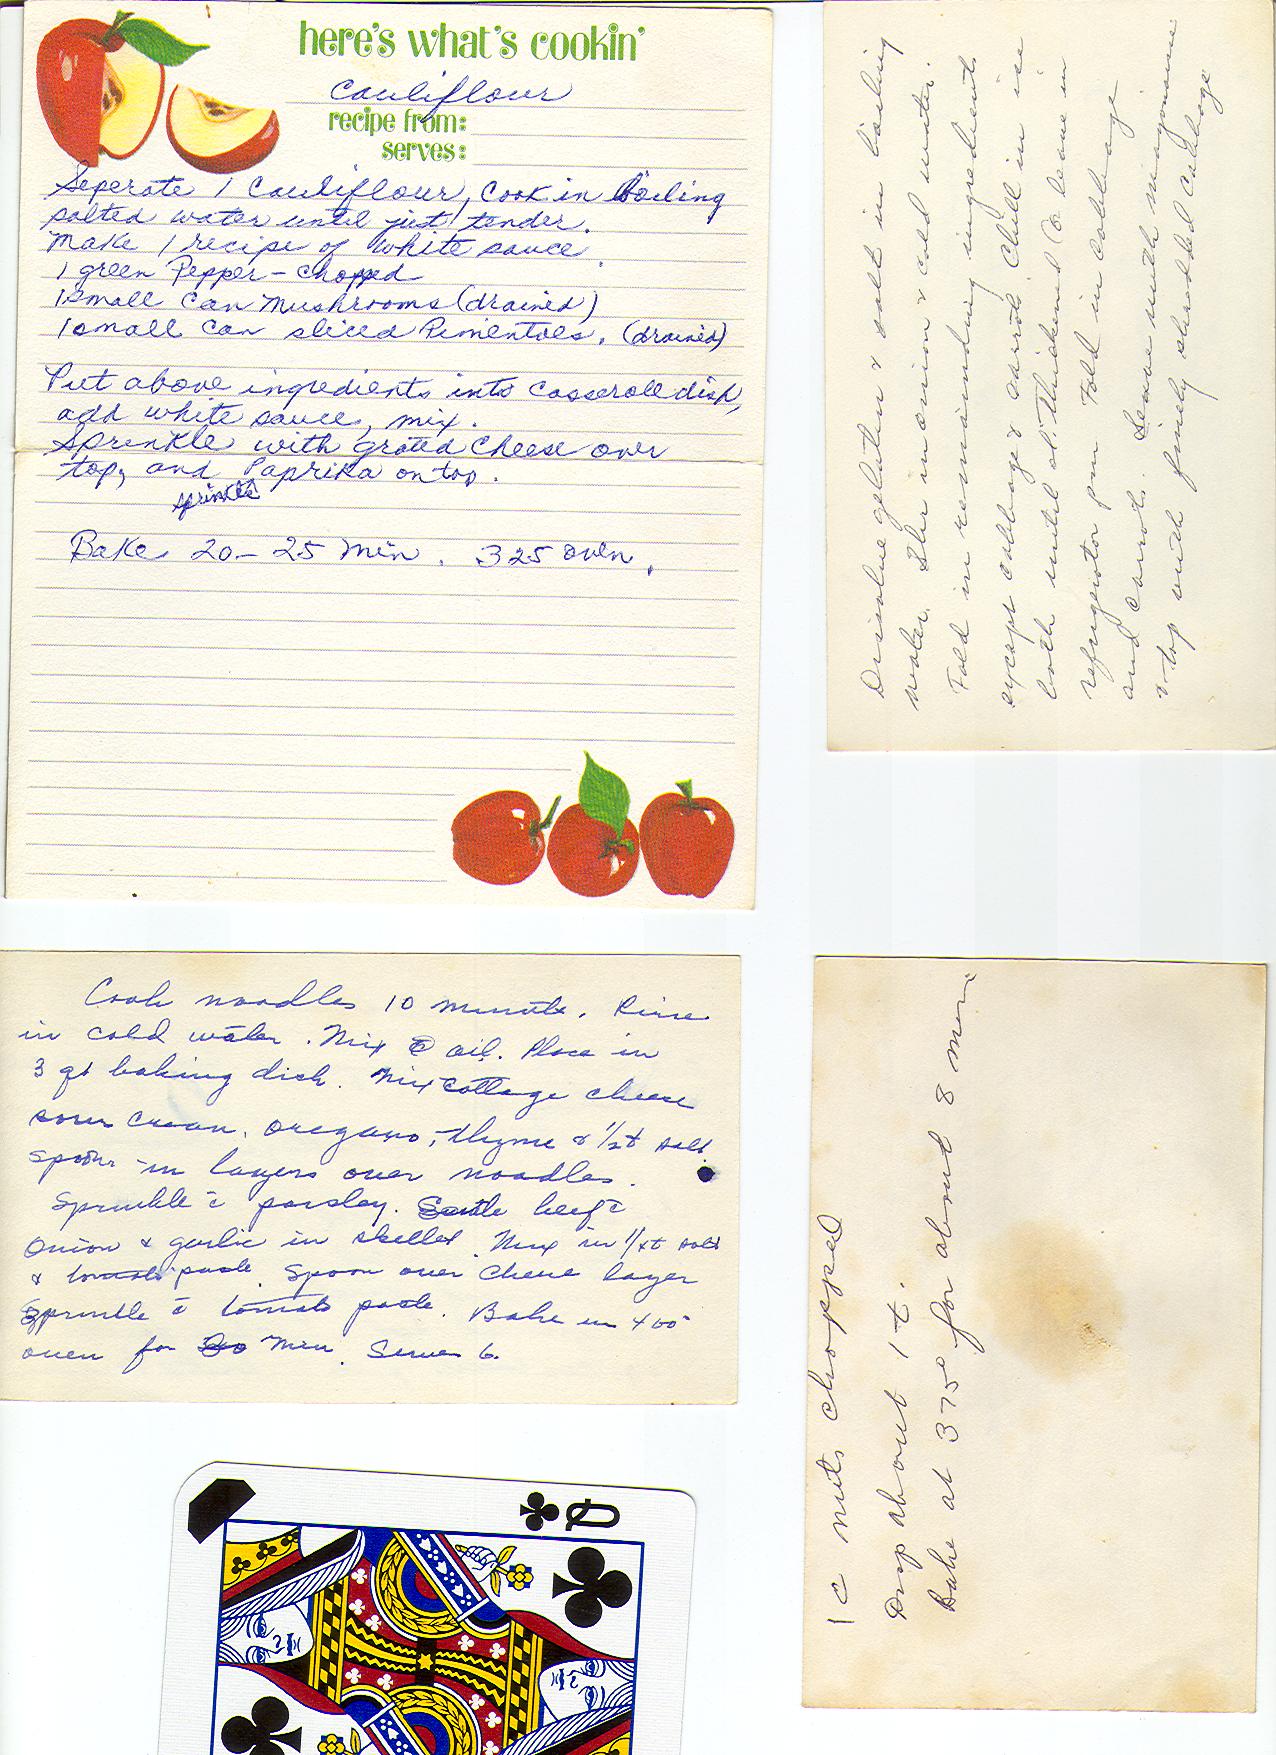 here's what's cookin'
Cauliflour
recipe from:
serves:
Seperate 1 Cauliflour, Cook in Boiling
salted water until just tender.
Make 1 recipe of white sauce.
1 green Pepper - chopped
1 small can Mushrooms (drained)
1 small can sliced Pimentoes. (drained)
Put above ingredients into casserole dish,
add white sauce, mix.
Sprinkle with grated cheese over
top, and Paprika on top.
sprinkle
Bake 20-25 min. 325 oven.
Dissolve gelatin & salt in boiling
water. Stir in onion & cold water.
Fold in remainding ingredients
except cabbage & carrots. Chill in ice
bath until sl. thickened (or leave in
refrigerator Fold in cabbage
and carrots. Serve with mayonnaise
& top with finely shredded cabbage
Cook noodles 10 minute. Rinse
in cold water. Mix c̄ oil. Place in
3 qt baking dish. Mix cottage cheese
sour cream, oregano, thyme & 1/2 t salt.
spoon in layers over noodles.
Sprinkle c̄ parsley. Sauté beef c̄
onion & garlic in skillet. Mix in salt
& tomato paste. Spoon over cheese layer
Sprinkle c̄ tomato paste. Bake in 400°
oven for min. Serves 6.
1 c nuts chopped
Drop about 1 t.
Bake at 375° for about 8 min
Q